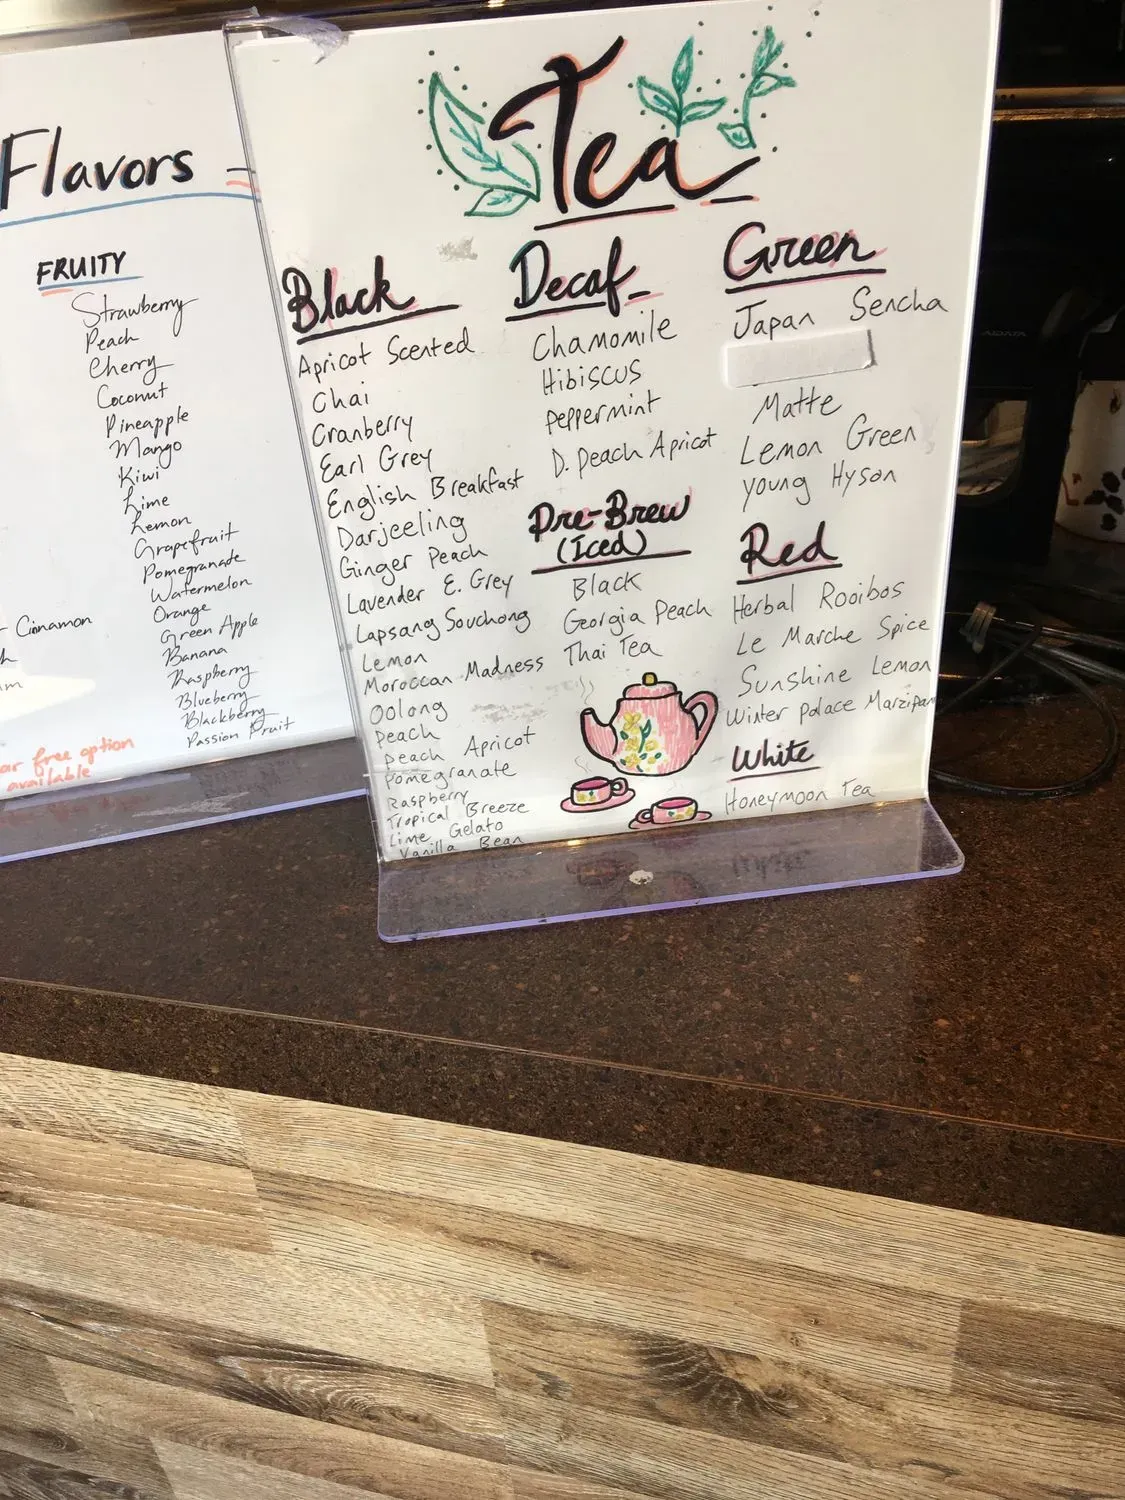 Flavors
FRUITY
Strawberry
Peach
Cherry
Coconut
Pineapple
Mango
Kiwi
Lime
Lemon
Grapefruit
Pomegranade
Watermelon
Orange
Green Apple
Banana
Raspberry
Blueberry
Blackberry
Passion Fruit
Cinnamon
free option
available
Tea
Black
Apricot Scented
Chai
Cranberry
Earl Grey
English Breakfast
Darjeeling
Ginger Peach
Lavender E. Grey
Lapsang Souchong
Lemon
Moroccan Madness
Oolong
Peach
Peach Apricot
Pomegranate
Raspberry
Tropical Breeze
Lime Gelato
Vanilla Bean
Decaf
Chamomile
Hibiscus
Peppermint
D. Peach Apricot
Pre-Brew
(Iced)
Black
Georgia Peach
Thai Tea
Green
Japan Sencha
Matte
Lemon Green
Young Hyson
Red
Herbal Rooibos
Le Marche Spice
Sunshine Lemon
Winter Palace Marzipan
White
Honeymoon Tea